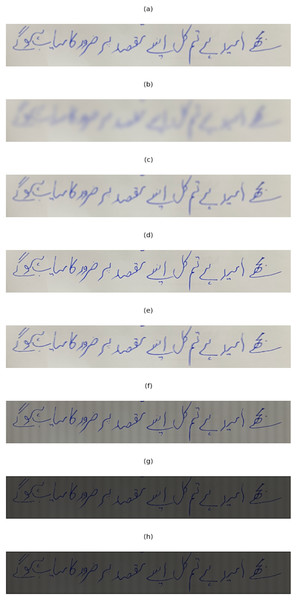 (a)
مجھے امید ہے تم کل اپنے مقصد میں ضرور کامیاب ہوگے
(b)
(c)
مجھے امید ہے تم کل اپنے مقصد میں ضرور کامیاب ہوگے
(d)
مجھے امید ہے تم کل اپنے مقصد میں ضرور کامیاب ہوگے
(e)
مجھے امید ہے تم کل اپنے مقصد میں ضرور کامیاب ہوگے
(f)
مجھے امید ہے تم کل اپنے مقصد میں ضرور کامیاب ہوگے
(g)
مجھے امید ہے تم کل اپنے مقصد میں ضرور کامیاب ہوگے
(h)
مجھے امید ہے تم کل اپنے مقصد میں ضرور کامیاب ہوگے